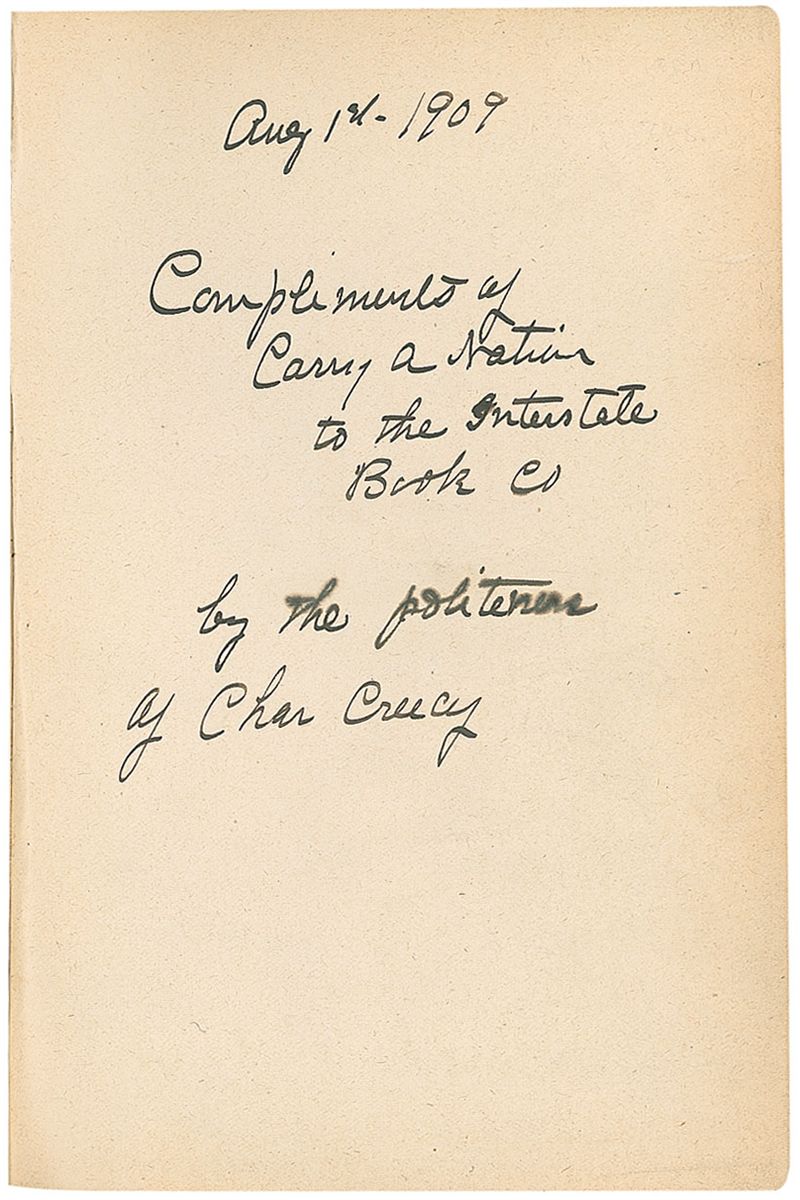 Aug 1st - 1909
Compliments of
Carry A Nation
to the Interstate
Book Co
by the politeness
of Chas Creecy